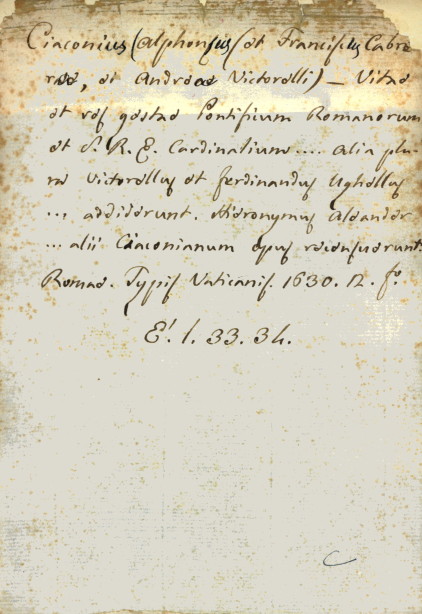 Ciaconius (Alphonsus (et Franciscus Cabre
rae, et Andreae Victorelli) — Vitae
et res gestae Pontificum Romanorum
et S. R. E. Cardinalium .... Alia plu-
ra Victorellus et Ferdinandus Ughellus
... addiderunt. Hieronymus Aleander
... alii Ciaconianum opus recensuerunt
Romae. Typis Vaticanis. 1630. 12. fo.
E! 1. 33. 34.
C